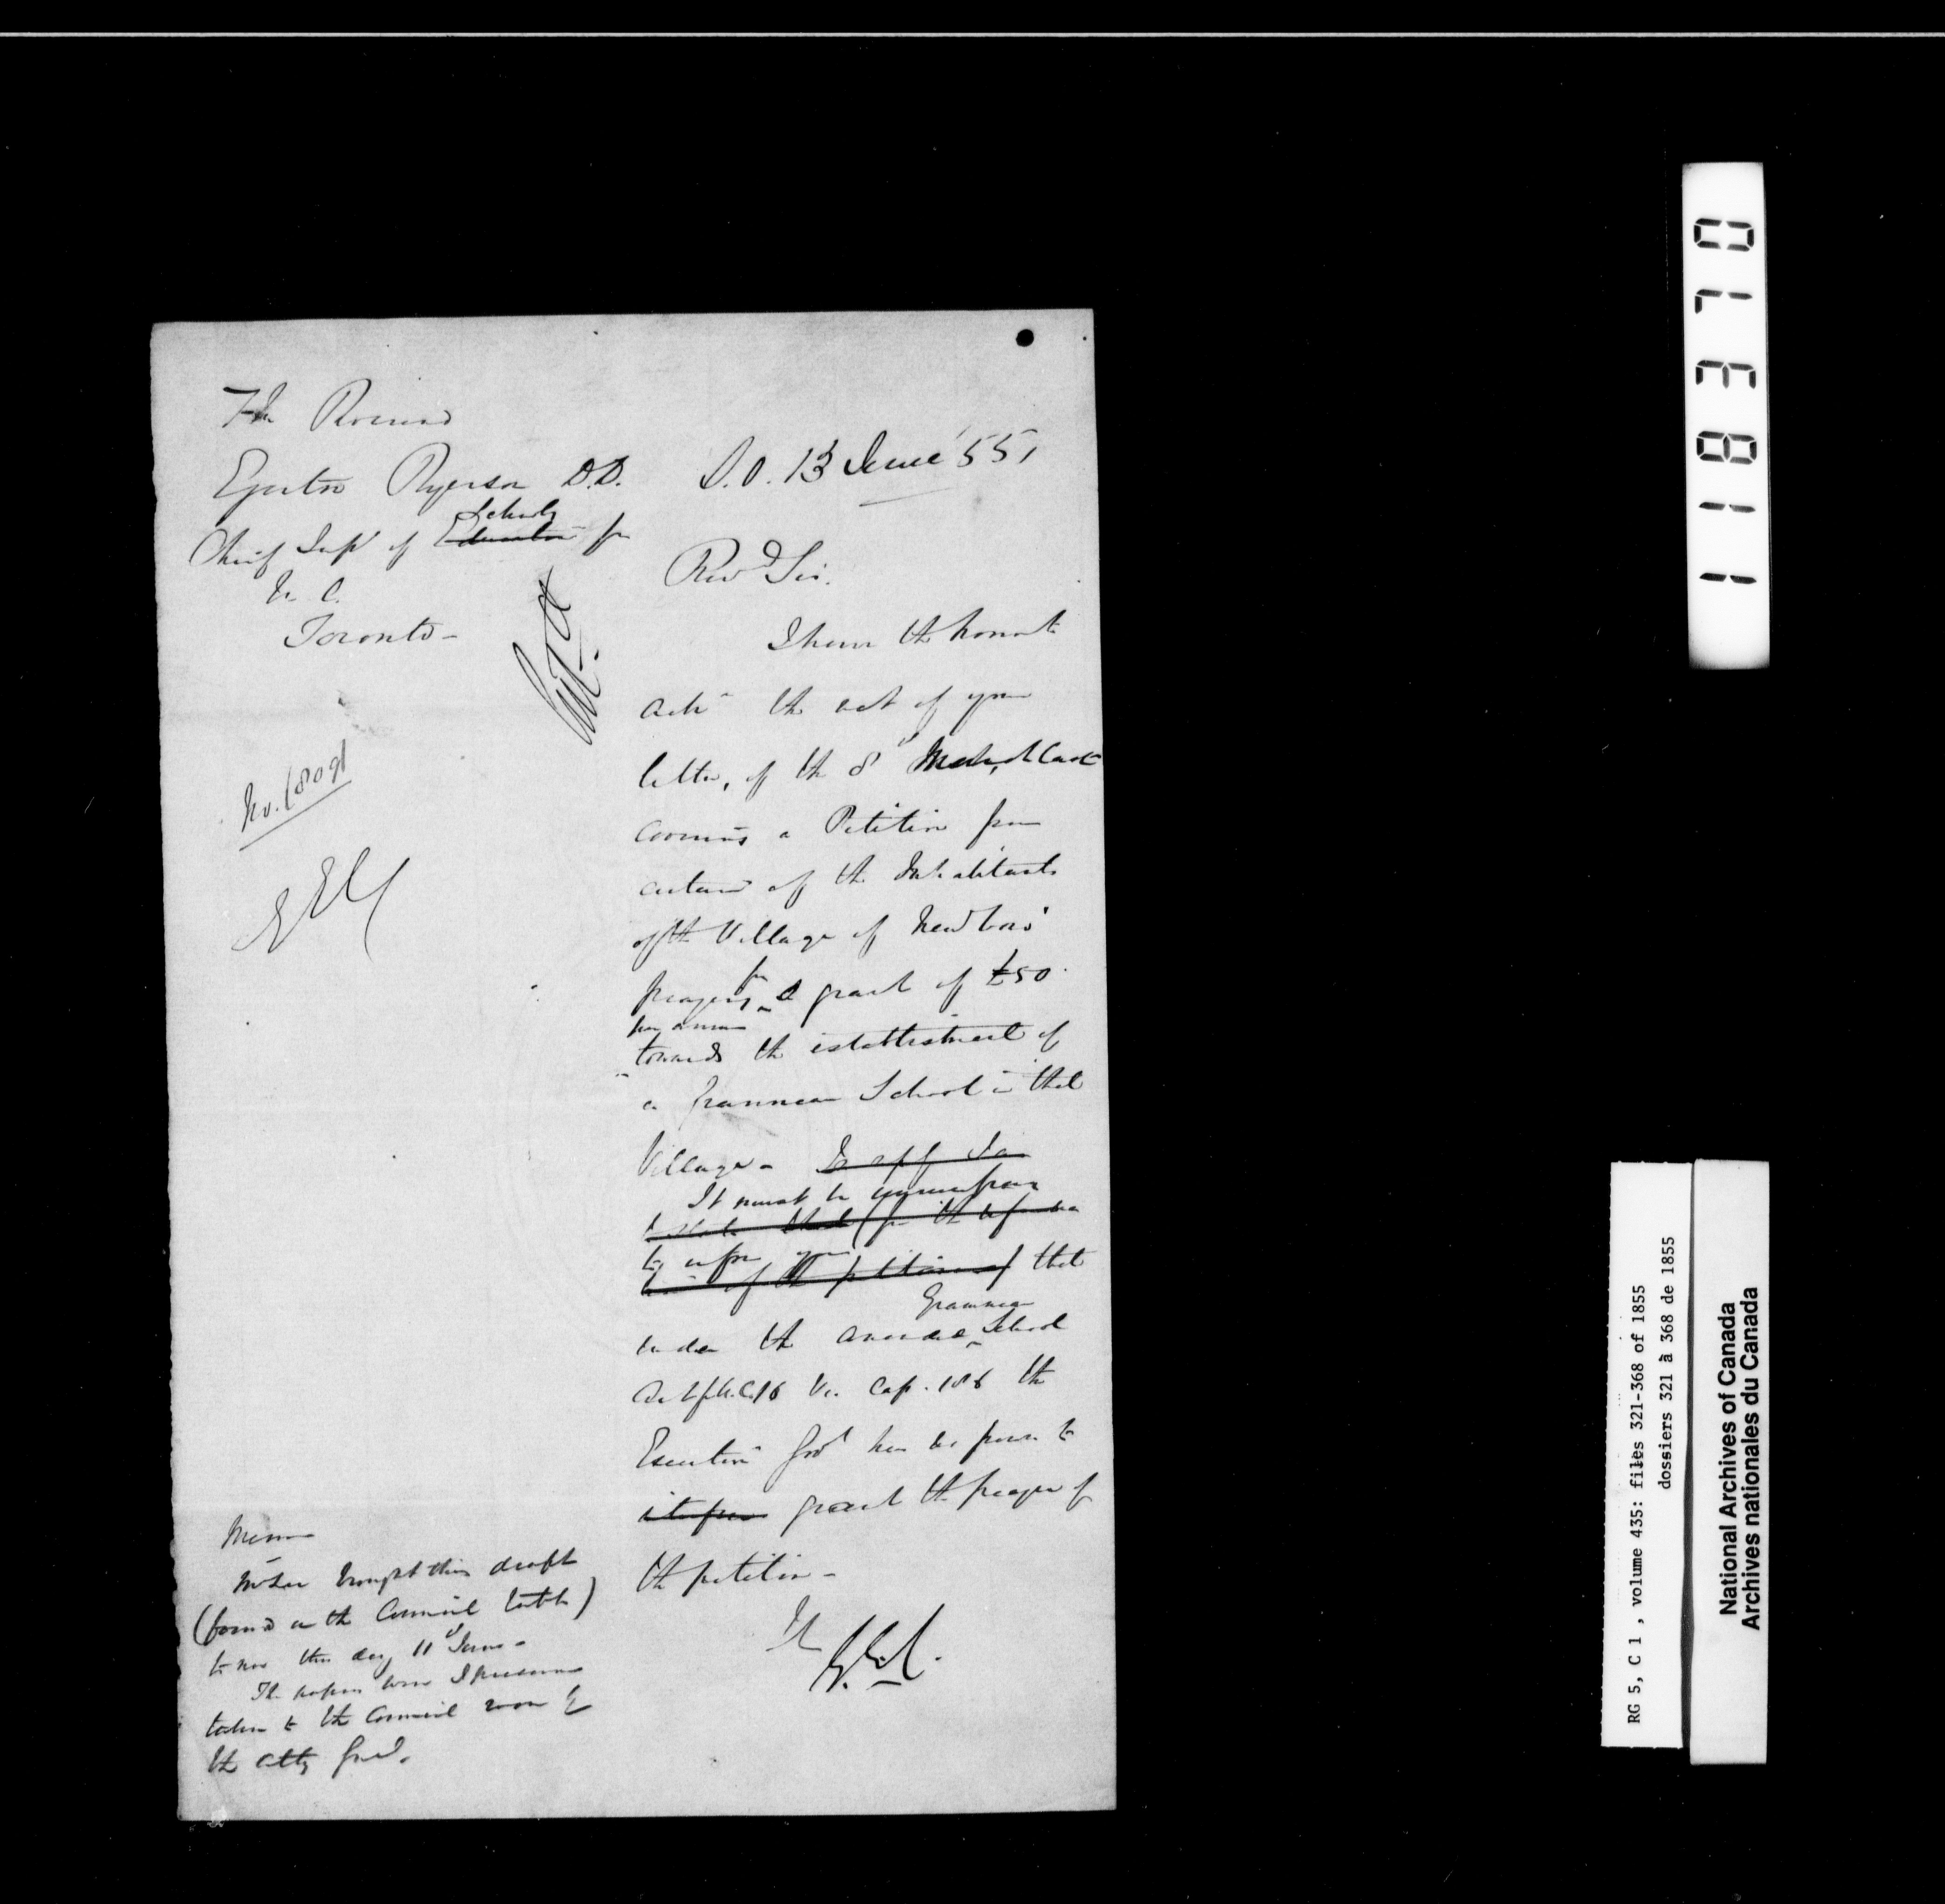 The Reverend
Egerton Ryerson D.D.
Chief Supt of Education Schools for
U. C.
Toronto -
S.O. 13 June '55,
Revd Sir.
I have the honor to
ackn the rect of your
letter, of the 8 March last
a Petition from
certain of the Inhabitants
of the Village of Newboro'
praying for a grant of £50
per annum
towards the establishment of
a Grammar School in that
Village -
It must be
to inform you that
under the Grammar School
Act of U.C. 16 Vic. Cap. 186 the
Executive Govt has no power to
grant the prayer of
the petition -
No. 1809
Memo
brought this draft
(found on the Council table)
to me this day 11 June -
The papers were I presume
taken to the Council room by
the Atty Genl.
0738111
RG 5, C 1 , volume 435: files 321-368 of 1855
dossiers 321 à 368 de 1855
National Archives of Canada
Archives nationales du Canada